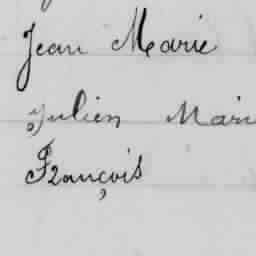 Jean Marie
Julien Mari
François